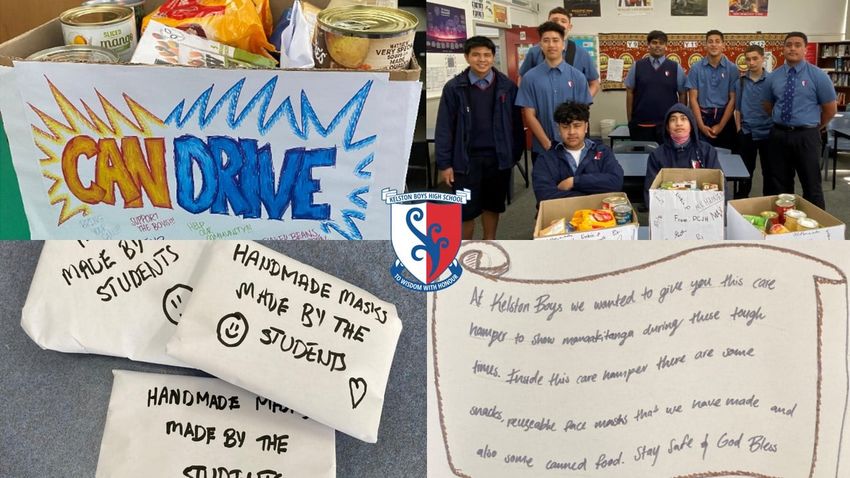 SLICED
mango
CAN DRIVE
SUPPORT
THE BOYS!!
HELP
OUR COMMUNITY!!
KELSTON BOYS HIGH SCHOOL
TO WISDOM WITH HONOUR
MADE BY THE
STUDENTS
HANDMADE MASKS
MADE BY THE
STUDENTS
HANDMADE
MADE BY THE
STUDENTS
At Kelston Boys we wanted to give you this care
hamper to show manaakitanga during these tough
times. Inside this care hamper there are some
snacks, reuseable face masks that we have made and
also some canned food. Stay Safe & God Bless